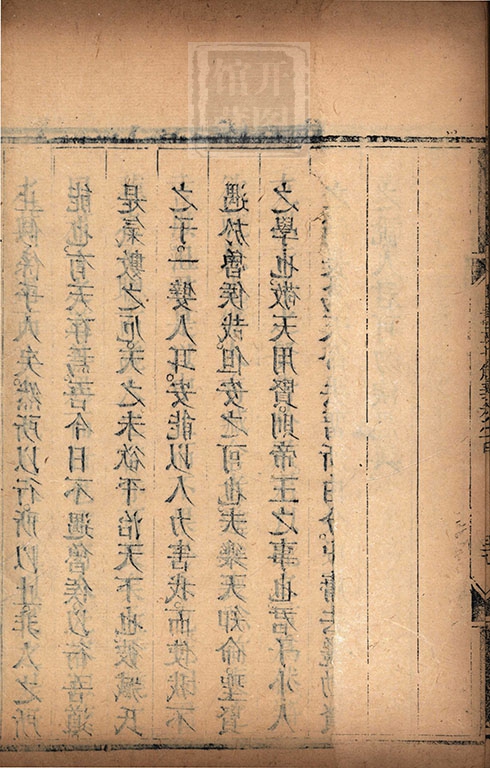 止係乎人矣然所以行所以止非人之所
能也有天存焉吾今日不遇魯侯以行吾道
是氣數之厄天之未欲平治天下也彼臧氏
之子一嬖人耳安能以人力害我而使我不
遇於魯侯哉但安之可也夫樂天知命聖賢
之學也敬天用賢則帝王之事也君子小人